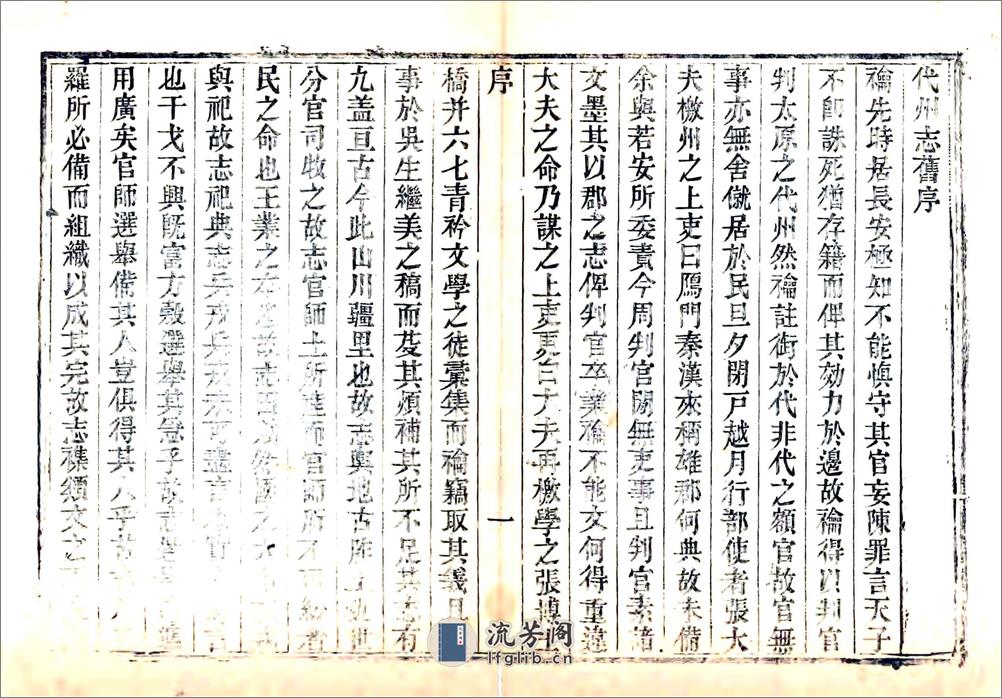 代州志舊序
禴先時居長安極知不能慎守其官妄陳罪言天子
不卽誅死猶存籍而俾其効力於邊故禴得以判官
判太原之代州然禴註銜於代非代之額官故官無
事亦無舍僦居於民旦夕閉戸越月行部使者張大
夫檄州之上吏曰鴈門秦漢來稱雄郡何典故未備
余與若安所委責今周判官閑無吏事且判官素諸
文墨其以郡之志俾判官卒業禴不能文何得重違
大夫之命乃謀之上吏更白大夫再檄學之張博
序
一
橋并六七青衿文學之徒彙集而禴竊取其義且
事於吳生繼美之稿而芟其煩補其所不足其志有
九盖亘古今此山川疆里也故志輿地古阼土
分官司牧之故志官師土所建而官師所不
民之命也王業之本故志田
與祀故志祀典志兵戎兵戎未可盡言
也干戈不興旣富方穀選舉其急乎故志選
用廣矣官師選舉備其人豈俱得其人乎故
羅所必備而組織以成其完故志襍類文之
流芳閣
lfglib.cn